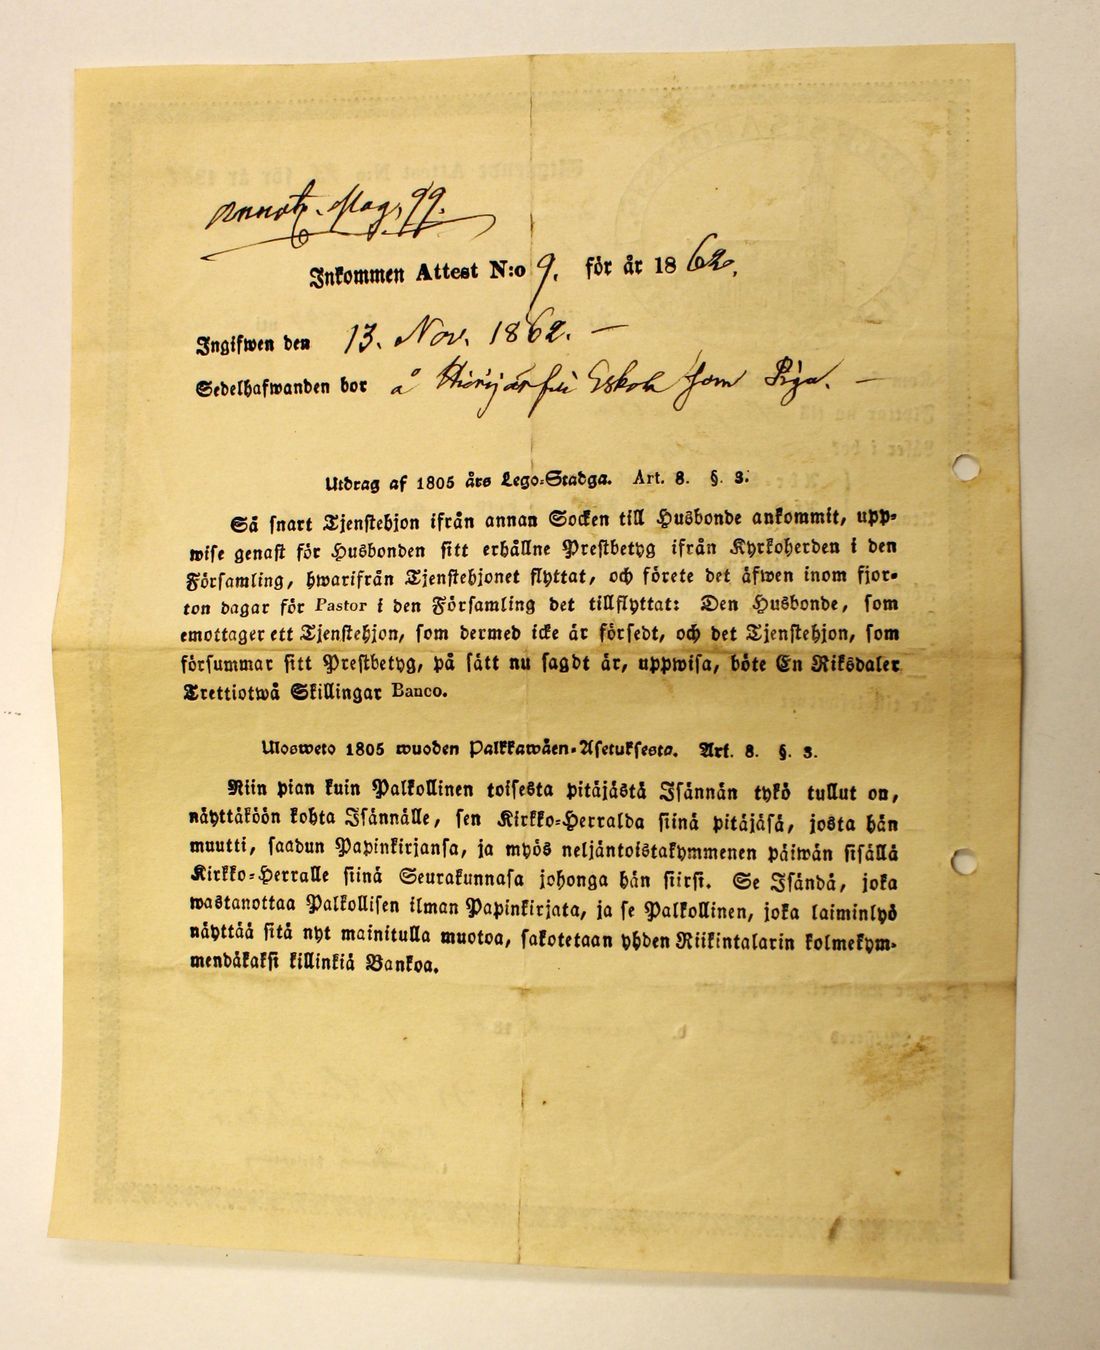 Annot. Pag. 99.
Inkommen Attest N:o 9. för år 1862.
Ingifwen den 13. Nov. 1862. —
Sedelhafwanden bor å Eskola som Piga. —
Utdrag af 1805 års Lego-Stadga. Art. 8. §. 3.
Så snart Tjenstehjon ifrån annan Socken till Husbonde ankommit, upp-
wise genast för Husbonden sitt erhållne Prestbetyg ifrån Kyrkoherden i den
Församling, hwarifrån Tjenstehjonet flyttat, och förete det äfwen inom fjor-
ton dagar för Pastor i den Församling det tillflyttat: Den Husbonde, som
emottager ett Tjenstehjon, som dermed icke är försedt, och det Tjenstehjon, som
försummar sitt Prestbetyg, på sätt nu sagdt är, uppwisa, böte En Riksdaler
Trettiotwå Skillingar Banco.
Ulosweto 1805 wuoden Palkkawäen-Asetuksesta. Art. 8. §. 3.
Niin pian kuin Palkollinen toisesta pitäjästä Isännän tykö tullut on,
näyttäköön kohta Isännälle, sen Kirkko-Herralda siinä pitäjäsä, josta hän
muutti, saadun Papinkirjansa, ja myös neljäntoistakymmenen päiwän sisällä
Kirkko-Herralle siinä Seurakunnasa johonga hän siirsi. Se Isändä, joka
wastanottaa Palkollisen ilman Papinkirjata, ja se Palkollinen, joka laiminlyö
näyttää sitä nyt mainitulla muotoa, sakotetaan yhden Riikintalarin kolmekym-
mendäkaksi killinkiä Bankoa.